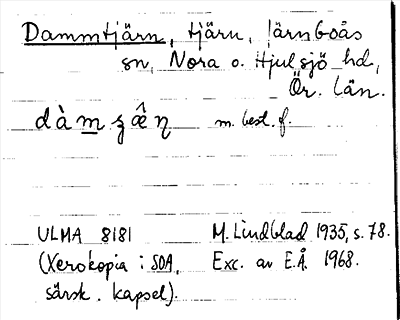 Dammtjärn, tjärn, Järnboås
sn, Nora o. Hjulsjö hd,
Ör. län.
dàmʒæ̂ɳ m. best. f.
ULMA 8181 M. Lindblad 1935, s. 78.
(Xerokopia i SOA, Exc. av E.Å. 1968.
särsk. kapsel).